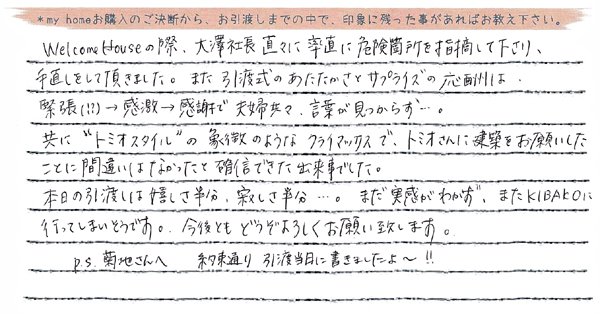 *my homeお購入のご決断から、お引渡しまでの中で、印象に残った事があればお教え下さい。
WelcomeHouseの際、大澤社長直々に率直に危険箇所を指摘して下さり、
手直しをして頂きました。また引渡式のあたたかさとサプライズの応酬は、
緊張(!!!)→感激→感謝で夫婦共々、言葉が見つからず…。
共に"トミオスタイル"の象徴のようなクライマックスで、トミオさんに建築をお願いした
ことに間違いはなかったと確信できた出来事でした。
本日の引渡しは嬉しさ半分、寂しさ半分…。まだ実感がわかず、またKIBAKOに
行ってしまいそうです。今後ともどうぞよろしくお願い致します。
p.s. 菊地さんへ 約束通り 引渡当日に書きましたよ〜!!